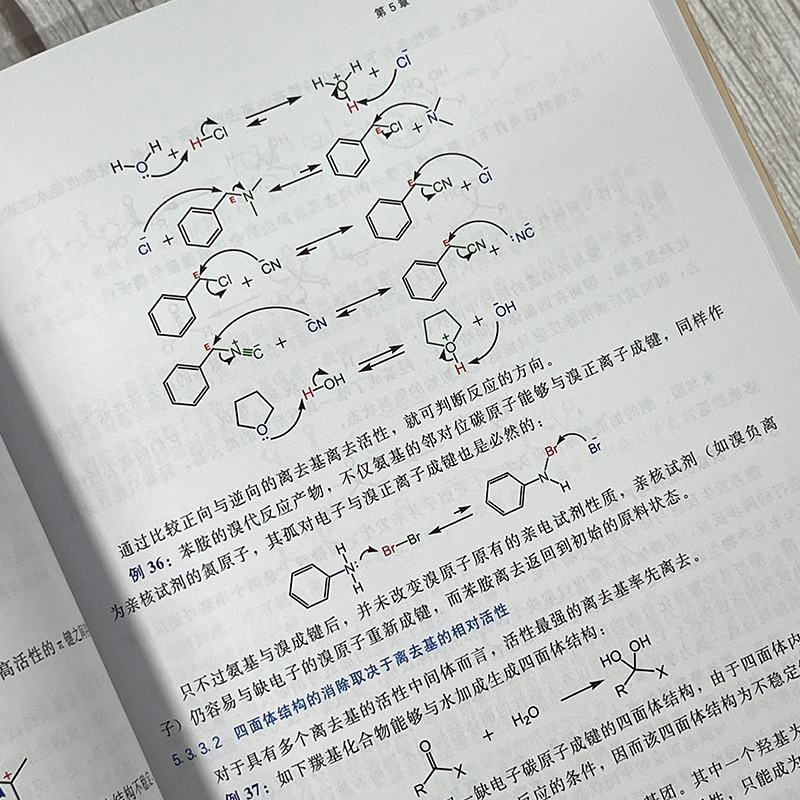 第5章
H H O + H Cl H H O + H + Cl-
Cl- + E N E Cl + N-
E Cl + CN- E CN + Cl-
E N+≡C- + CN- E CN + :NC-
O: H OH O+ H + -OH
通过比较正向与逆向的离去基离去活性，就可判断反应的方向。
例 36：苯胺的溴代反应产物，不仅氨基的邻对位碳原子能够与溴正离子成键，同样作
为亲核试剂的氮原子，其孤对电子与溴正离子成键也是必然的：
H N: H Br Br N Br H Br-
只不过氨基与溴成键后，并未改变溴原子原有的亲电试剂性质，亲核试剂（如溴负离
子）仍容易与缺电子的溴原子重新成键，而苯胺离去返回到初始的原料状态。
5.3.3.2 四面体结构的消除取决于离去基的相对活性
对于具有多个离去基的活性中间体而言，活性最强的离去基率先离去。
例 37：如下羰基化合物能够与水加成生成四面体结构：
O R X + H2O HO OH R X
缺电子碳原子成键的四面体结构，由于四面体内
反应的条件，因而该四面体结构为不稳定
基团。其中一个羟基为
性，只能成为
高活性的 π 键之间